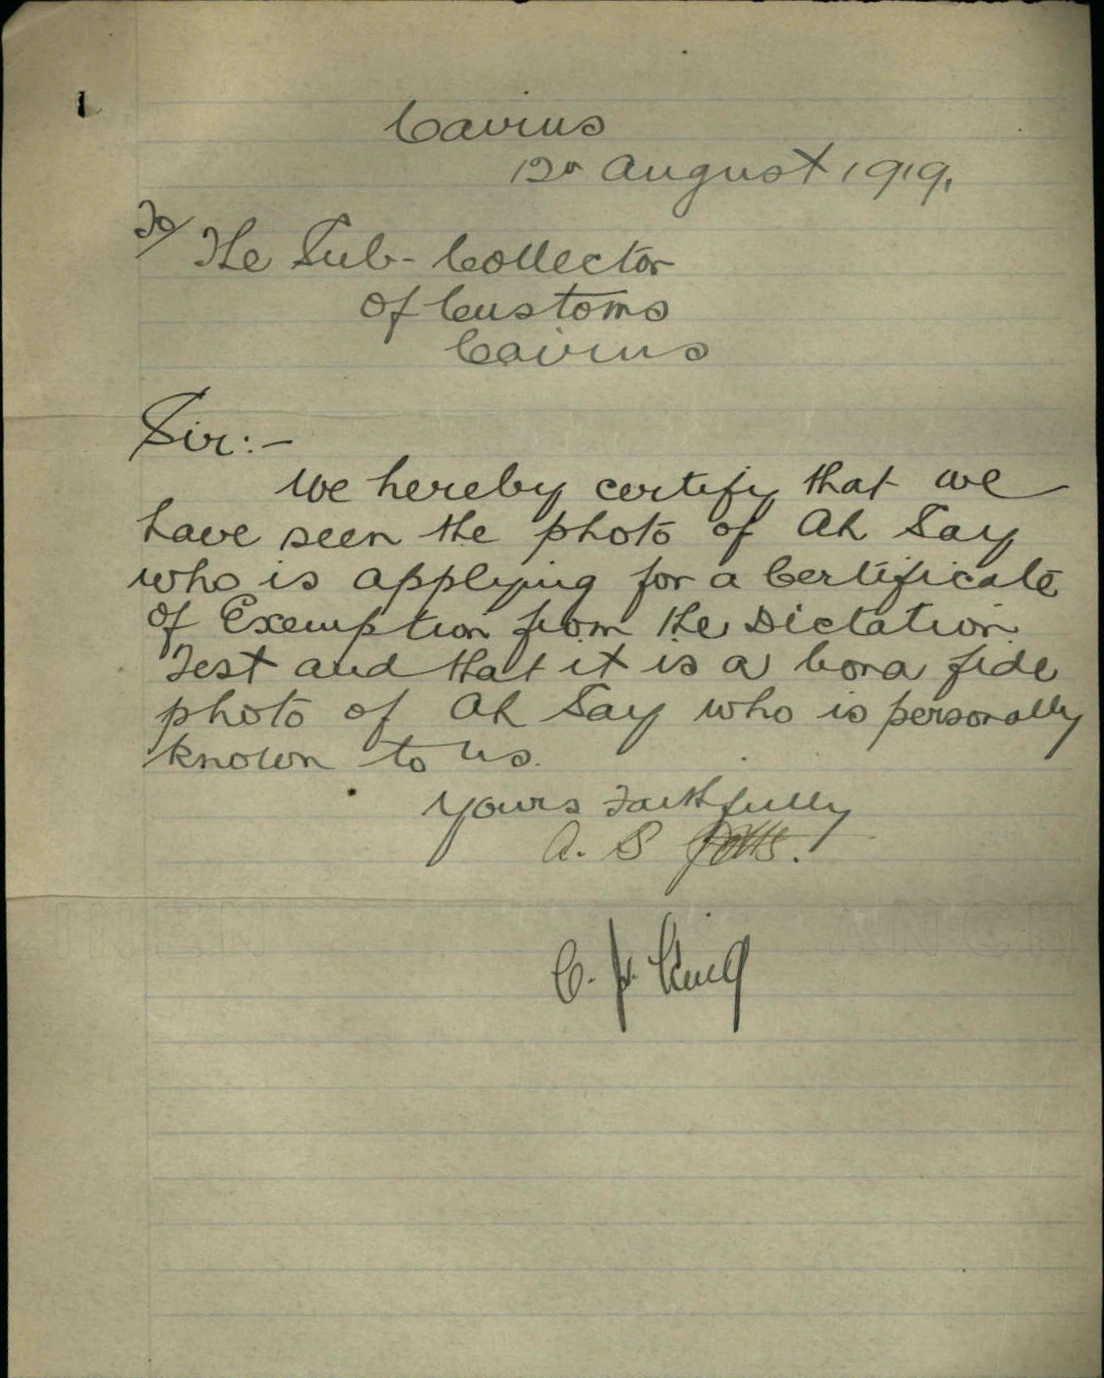 Cairns
12th August 1919.
To/ The Sub-Collector
of Customs
Cairns
Sir:-
We hereby certify that we
have seen the photo of Ah Say
who is applying for a Certificate
of Exemption from the Dictation
Test and that it is a bona fide
photo of Ah Say who is personally
known to us.
Yours Faithfully
A. S
C. King